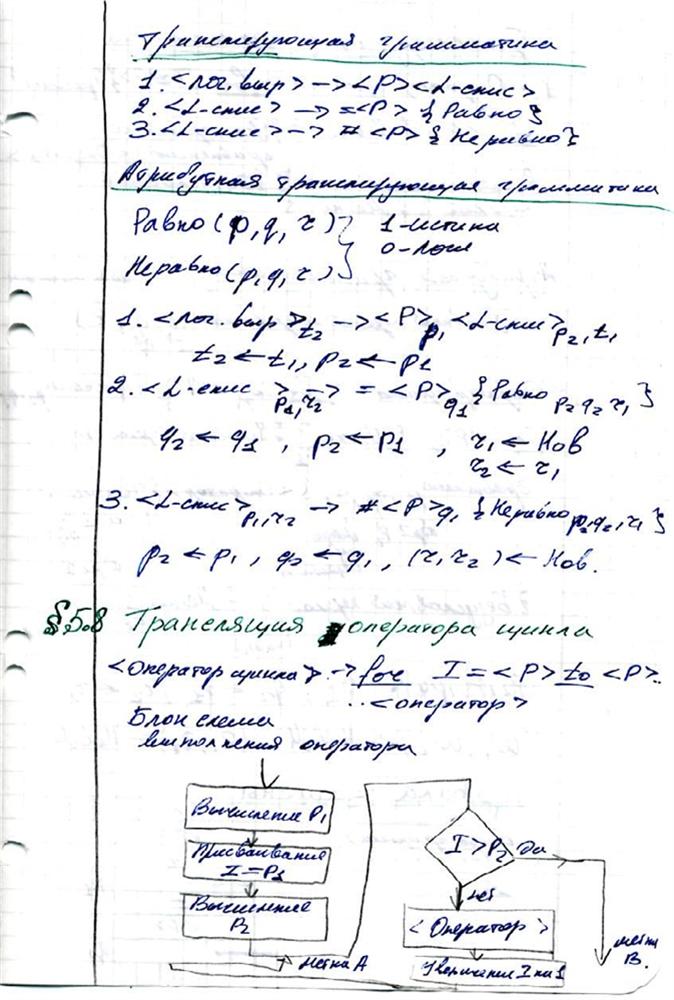 Транслирующая грамматика
1. <Лог. выр> → <P> <L-спис>
2. <L-спис> → =<P> {Равно}
3. <L-спис> → ≠ <P> {Неравно}
Атрибутная транслирующая грамматика
Равно (p, q, r) } 1-истина
0-ложь
Неравно (p, q, r)
1. <Лог. выр>t2 → <P>p1 <L-спис>p2, t1
t2 ← t1, p2 ← p1
2. <L-спис>p1, r2 → = <P>q1 {Равно p2 q2 r1}
q2 ← q1, p2 ← p1, r1 ← Нов
r2 ← r1
3. <L-спис>p1, r2 → ≠ <P>q1 {Неравно p2 q2, r1}
p2 ← p1, q2 ← q1, (r1 r2) ← Нов.
§5.8 Трансляция оператора цикла
<оператор цикла> → for I = <P> to <P>..
..<оператор>
Блок схема
выполнения оператора
Вычисление P1
Присваивание
I = P1
Вычисление
P2
метка A
I > P2 Да
нет
<Оператор>
Увеличение I на 1
метка
B.